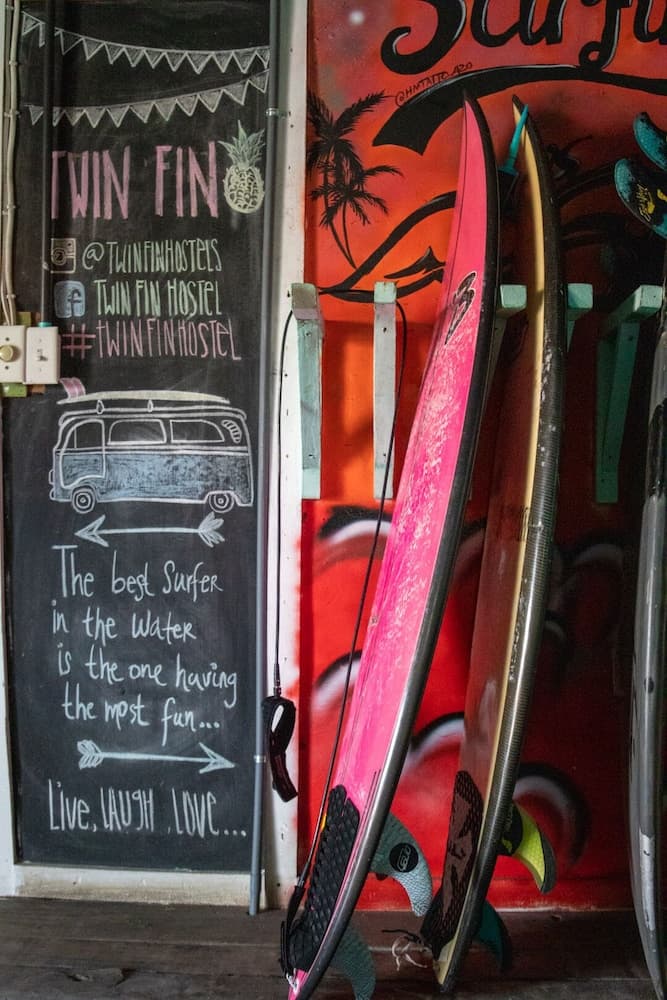 TWIN FIN
@TWINFINHOSTELS
f TWIN FIN HOSTEL
#TWINFINHOSTEL
The best Surfer
in the water
is the one having
the most fun...
Live, LAUGH, LOVE...
@HMTATTO_A20